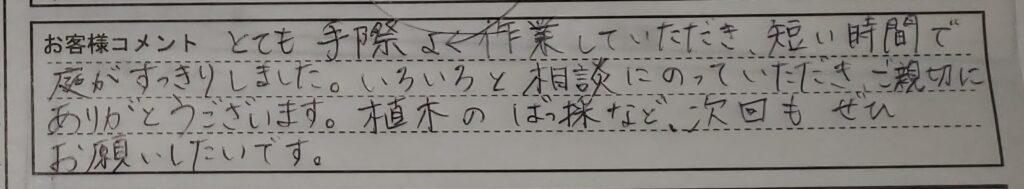 お客様コメント とても 手際 よく 作業していただき、短い時間で
庭がすっきりしました。いろいろと相談にのっていただきご親切に
ありがとうございます。植木のばっ採など、次回もぜひ
お願いしたいです。